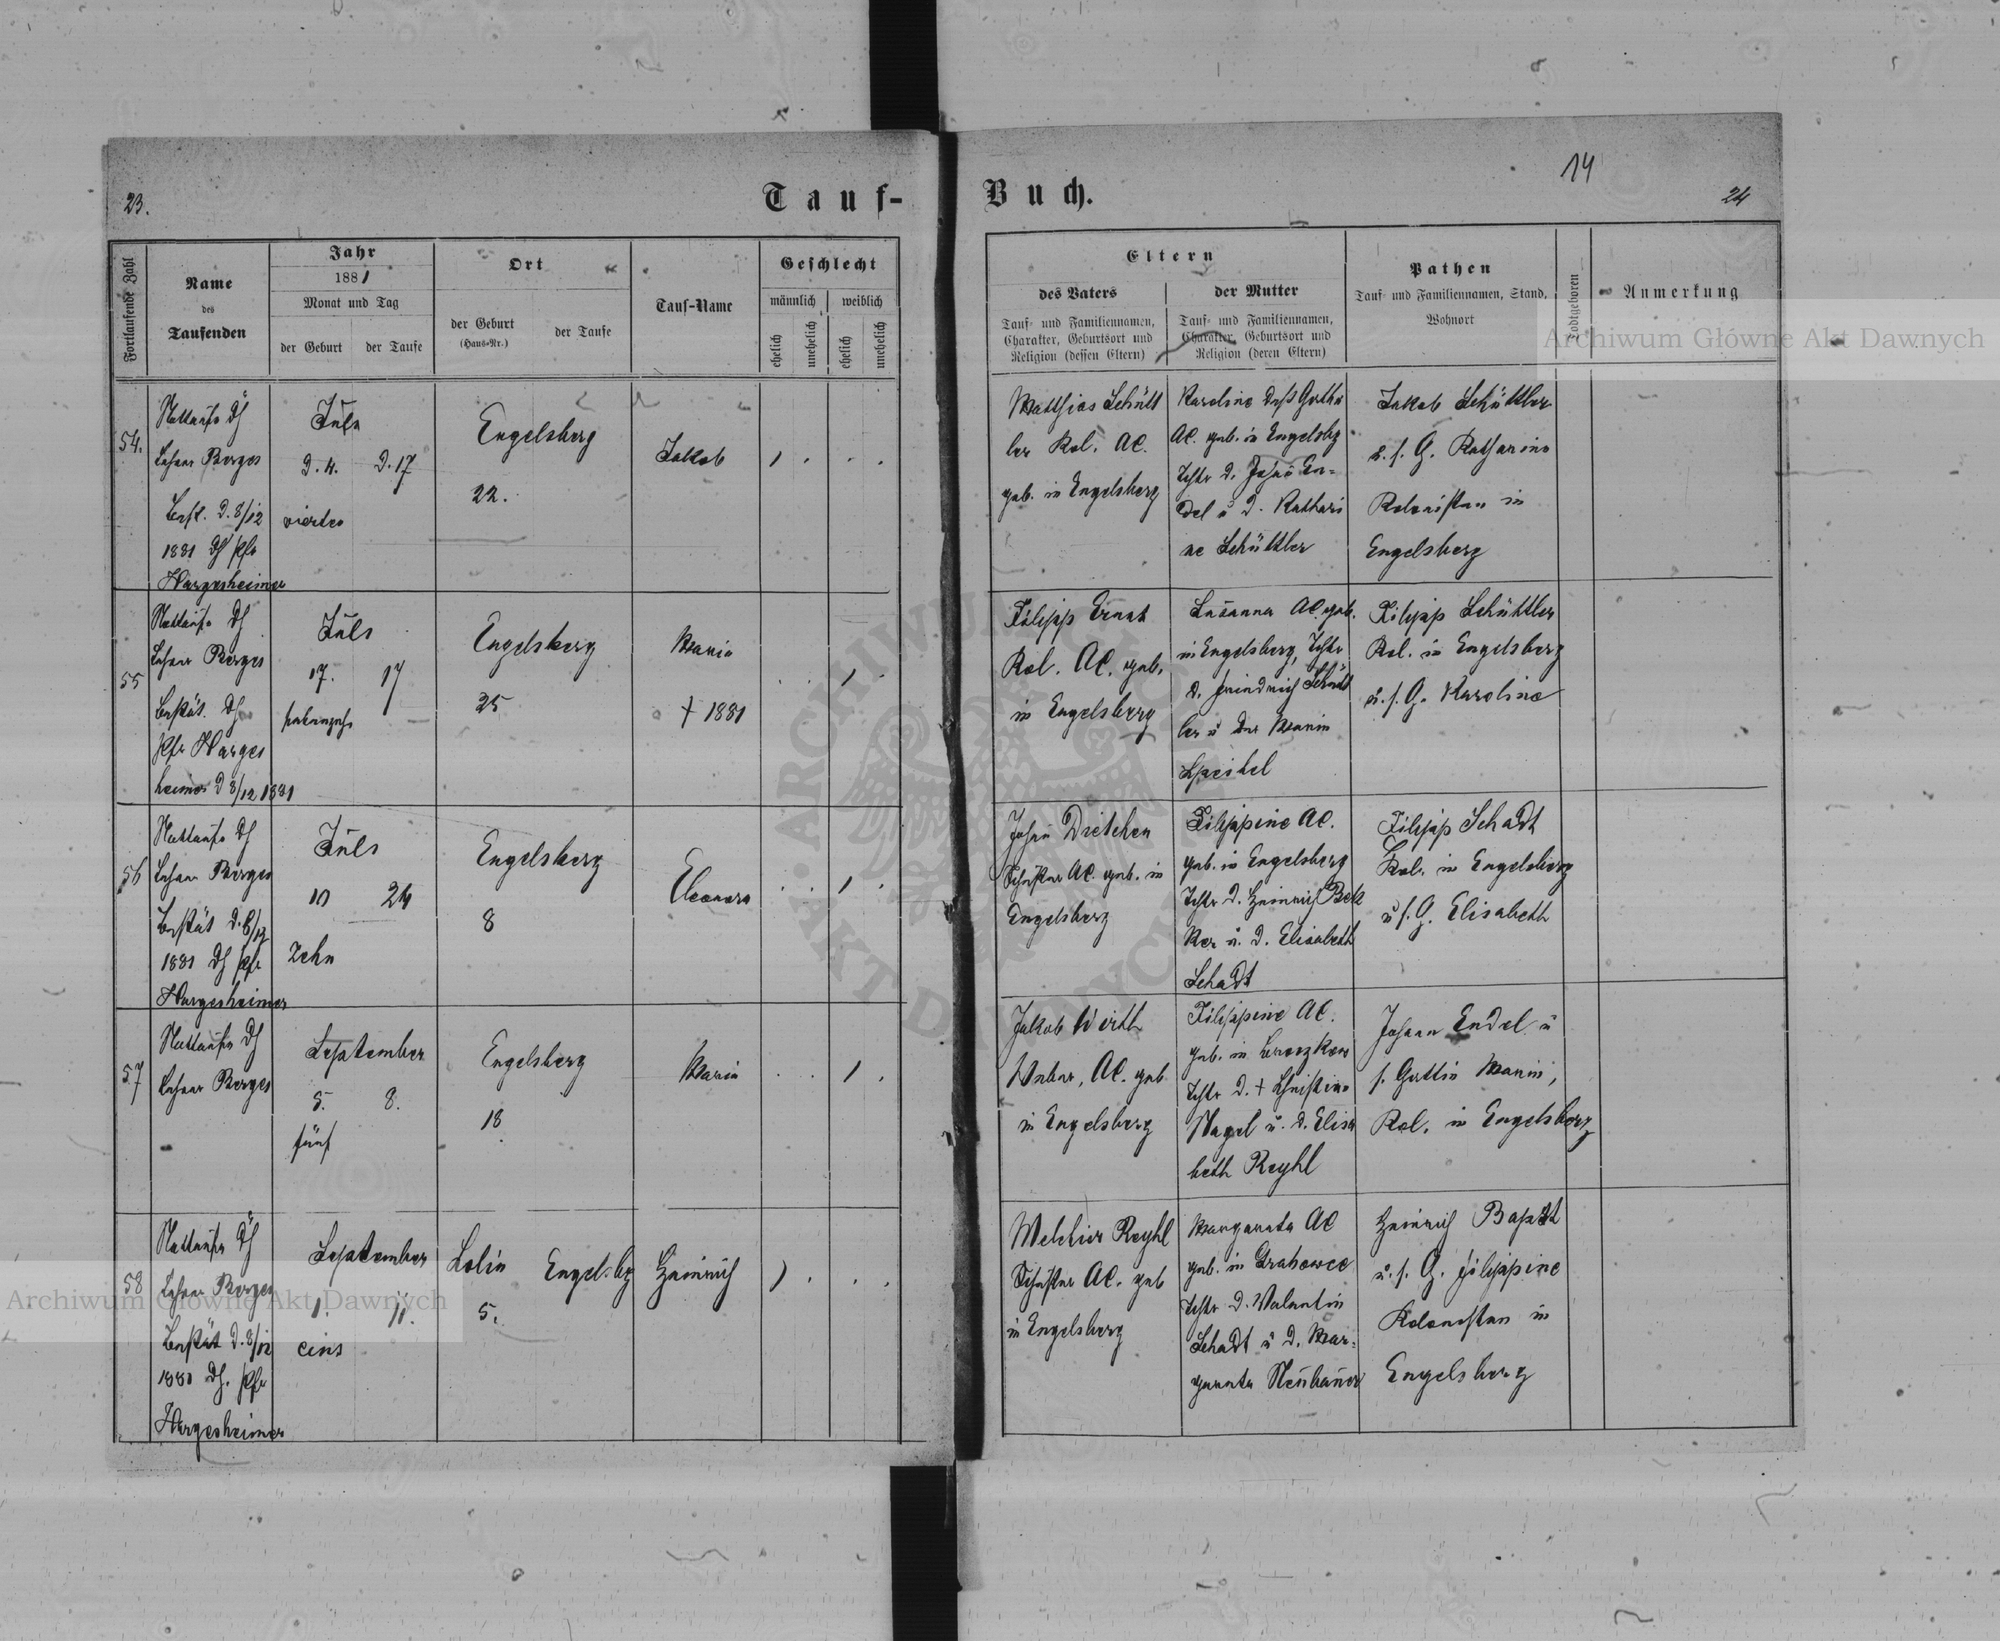 23.
Tauf-
Fortlaufende Zahl
Name
des
Taufenden
Jahr
1881
Monat und Tag
der Geburt
der Taufe
Ort
der Geburt
(Haus-Nr.)
der Taufe
Tauf-Name
Geschlecht
männlich
weiblich
ehelich
unehelich
ehelich
unehelich
54.
Nottaufe dh
Lehrer Borges
Best. d. 8/12
1881 dh Pfr
Hargesheimer
Juli
d. 4. d. 17
vierter
Engelsberg
22.
Jakob
1 . . .
55
Nottaufe dh
Lehrer Borges
Bestät. dh
Pfr Harges
heimer d 8/12 1881
Juli
17. 17
siebenzehn
Engelsberg
25
Maria
† 1881
. . 1 .
56
Nottaufe dh
Lehrer Borges
Bestät d. 8/12
1881 dh Pfr
Hargesheimer
Juli
10 24
zehn
Engelsberg
8
Eleonora
. . 1 .
57
Nottaufe dh
Lehrer Borges
September
5. 8.
fünf
Engelsberg
18
Maria
. . 1 .
58
Nottaufe dh
Lehrer Borges
Bestät d. 8/12
1881 dh. Pfr
Hargesheimer
September
1. 11.
eins
Lolin Engelsbg
5.
Heinrich
1 . . .
Buch.
14
24
Eltern
des Vaters
der Mutter
Tauf- und Familiennamen,
Charakter, Geburtsort und
Religion (dessen Eltern)
Tauf- und Familiennamen,
Charakter, Geburtsort und
Religion (deren Eltern)
Pathen
Tauf- und Familiennamen, Stand,
Wohnort
Todtgeboren
Anmerkung
Matthias Schütt
ler Kol. AC.
geb. in Engelsberg
Karoline
AC. geb. in Engelsbg
Tchtr d. Johan En-
del u d. Kathari
ne Schüttler
Jakob Schüttler
u. s. G. Katharine
Kolonisten in
Engelsberg
Filipp Ernst
Kol. AC. geb.
in Engelsberg
Susanna AC. geb.
in Engelsberg, Tchtr
d. Friedrich Schütt
ler u der Maria
Speikel
Filipp Schüttler
Kol. in Engelsberg
u. s. G. Karoline
Johan Dietchen
Schuster AC. geb. in
Engelsberg
Filippine AC.
geb. in Engelsberg
Tchtr d. Heinrich Bek
ker u. d. Elisabeth
Schadt
Filipp Schadt
Kol. in Engelsberg
u s. G. Elisabeth
Jakob Wirth
Weber, AC. geb
in Engelsberg
Filippine AC.
geb. in
Tchtr d. † Christian
Nagel u. d. Elisa
beth Reyhl
Johann Endel u
s. Gattin Maria,
Kol. in Engelsberg
Melchior Reyhl
Schuster AC. geb
in Engelsberg
Margareta AC
geb. in Grabowce
Tchtr d. Valentin
Schadt u d. Mar-
gareta Neubauer
Heinrich Bapst
u. s. G. Filippine
Kolonisten in
Engelsberg
Archiwum Główne Akt Dawnych
Archiwum Główne Akt Dawnych